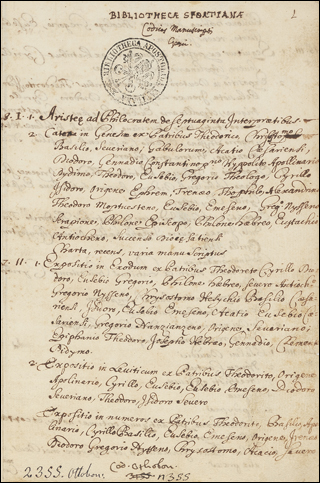 BIBLIOTHECÆ SFORTIANÆ
1
Codices Manuscripti
BIBLIOTHECA APOSTOLICA VATICANA
I. 1. Aristeę ad Philocratem de Septuaginta Interpretibus
2. Catena in Genesim ex Patribus Theodoreo, Chrysosto
Basilio, Severiano, Gabulorum, Acatio Cæsariensi,
Diodoro, Gennadio Constantinop. Hyppolito Apollinario
Dydimo, Theodoro, Eusebio, Gregorio Theologo, Cyrillo
Isidoro, Origene, Ephrem, Ireneo, Theophilo Alexandrino
Theodoro Mopsuesteno, Eusebio, Emeseno, Greg. Nysseno
Serapione, Philone Episcopo, Philone hebreo Eustachio
Antiocheno, Successo
Charta, recens, varia manu scriptus
II. 1. Expositio in Exodum ex Patribus Theodoreto Cyrillo Diodoro
Eusebio Gregorio, Philone hebreo, Severo Antioch
Gregorio Nysseno, Chrysostomo Hesychio Basilio Cæsariensi
Isidoro, Eusebio Emeseno, Acatio Eusebio Cæsariensi
Gregorio Nanzianzeno, Origene, Severiano
Epiphanio Theodoro, Josepho Hebreo, Gennadio, Clement
Didymo.
2. Expositio in Leviticum ex Patribus Theodorito, Origene
Apolinario, Cyrillo, Eusebio, Esichio, Emeseno, Diodoro
Severiano, Theodoro, Isidoro Severo
Expositio in numeros ex Patribus Theodorito, Basilio, Apolinario
Cyrillo Basillo, Eusebio, Emeseno, Origene, Ireneo
Diodoro Gregorio Nysseno, Chrysostomo, Acacio, Severo
2355. Ottobon.
Cod. Ottobon.
2355